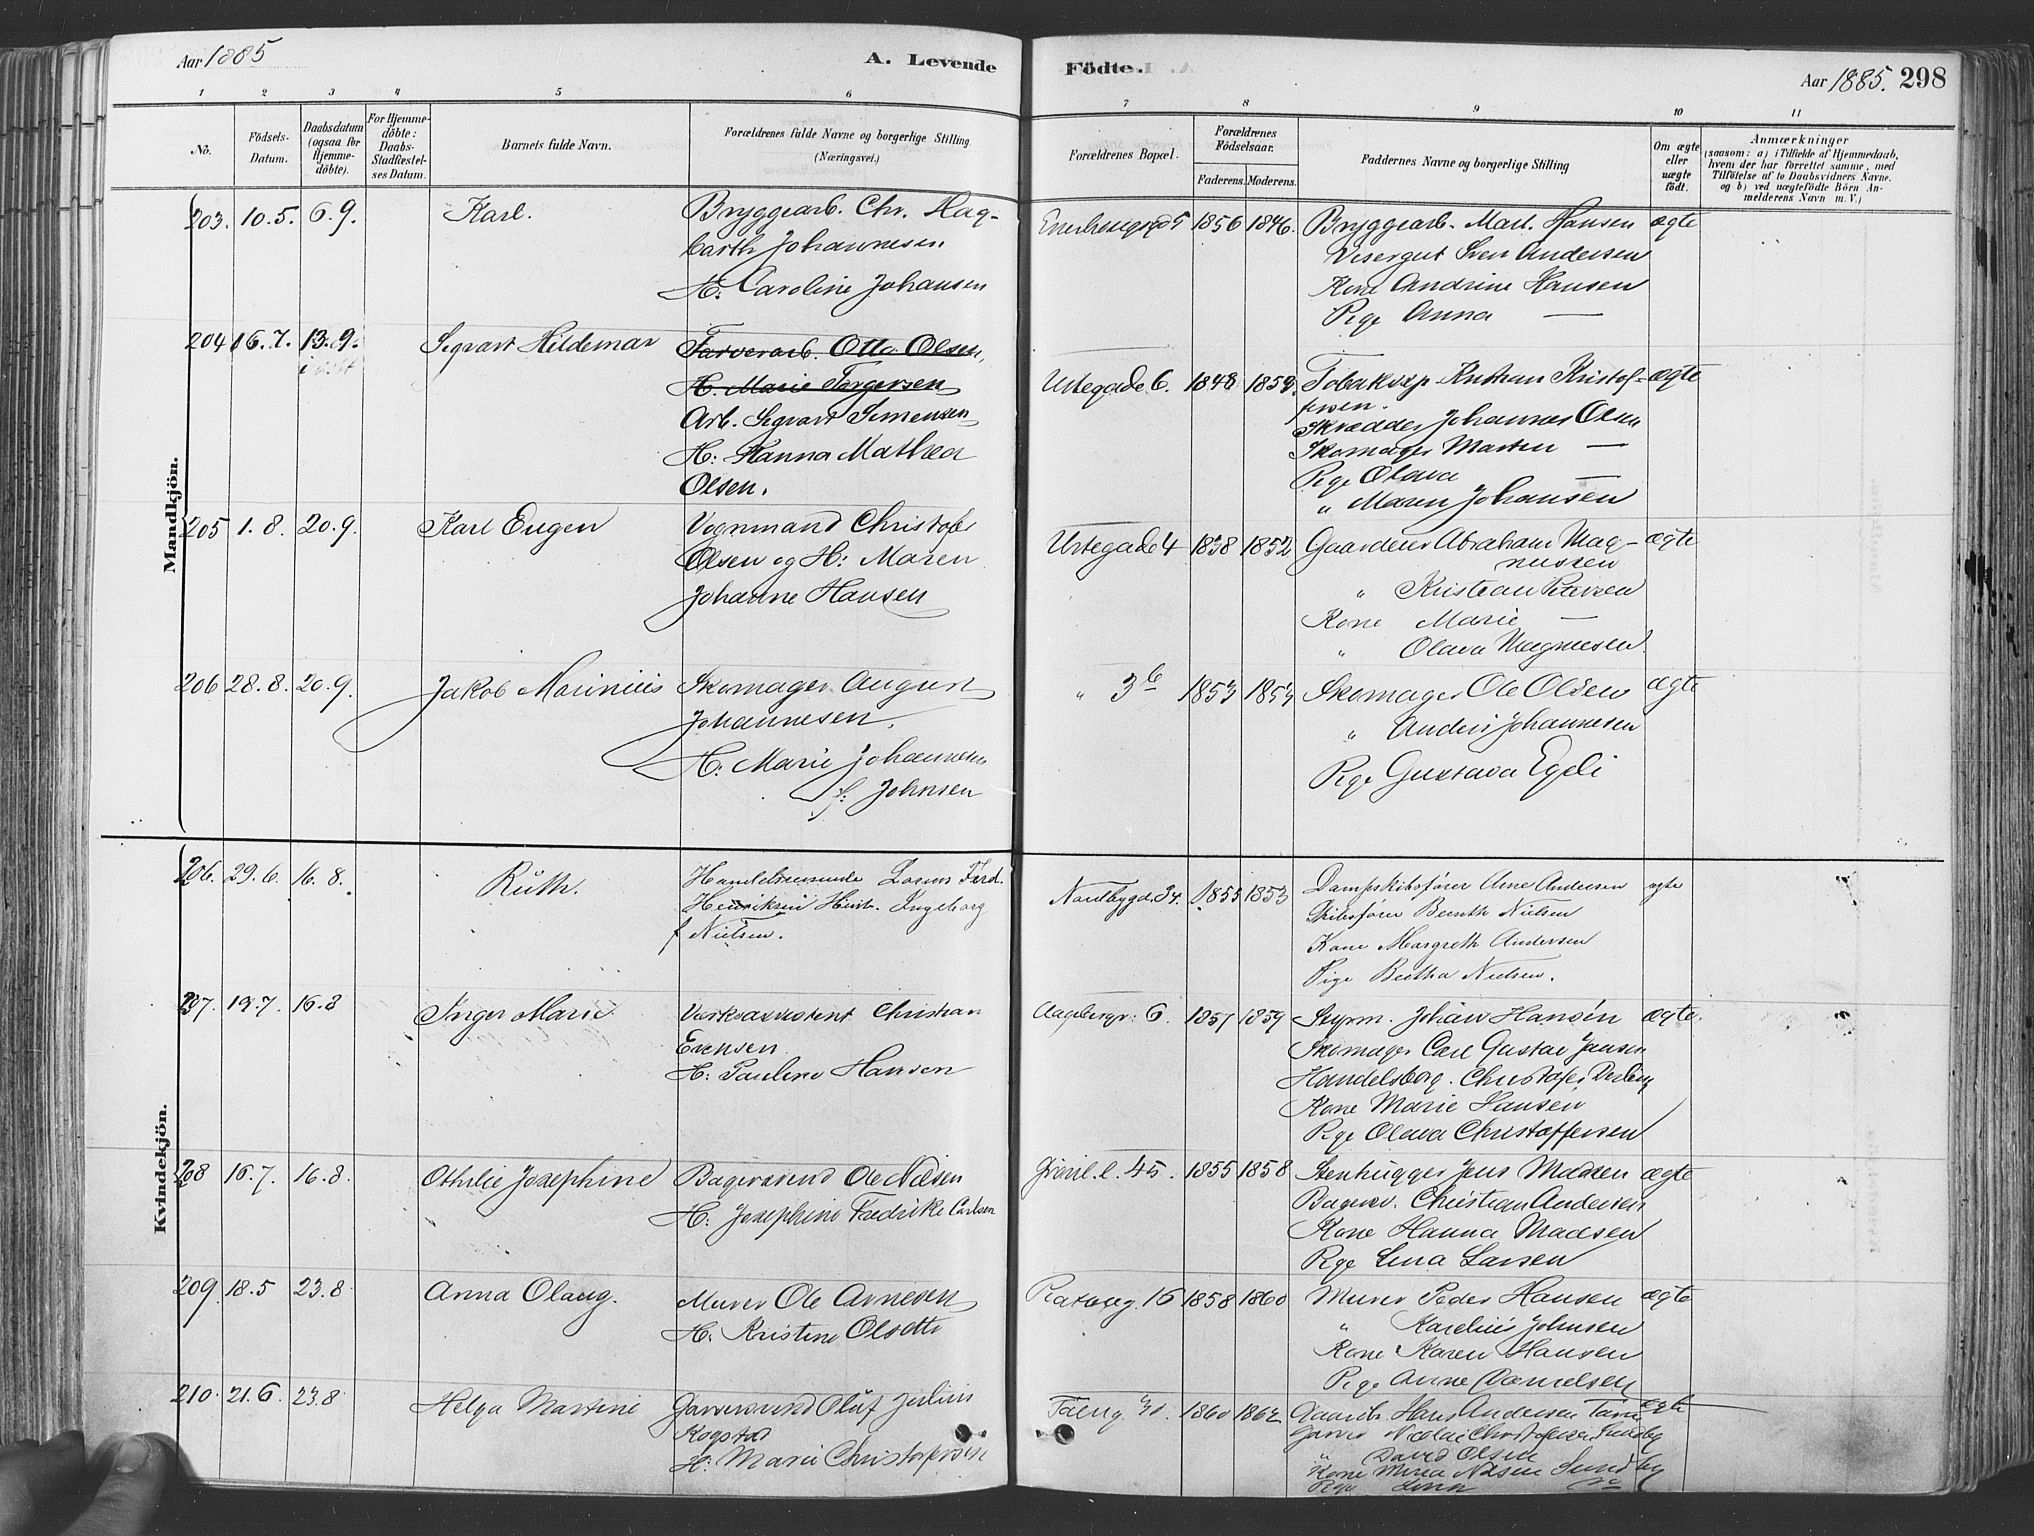 Aar 1885
A. Levende
Födte.
Aar 1885.
298
1 2 3 4 5 6 7 8 9 10 11
No.
Födsels-
Datum.
Daabsdatum
(ogsaa for
Hjemme-
döbte).
For Hjemme-
döbte:
Daabs-
Stadfæstel-
ses Datum.
Barnets fulde Navn.
Forældrenes fulde Navne og borgerlige Stilling
(Næringsvei.)
Forældrenes Bopæl.
Forældrenes
Födselsaar.
Faderens. Moderens.
Faddernes Navne og borgerlige Stilling
Om ægte
eller
uægte
födt.
Anmærkninger
(saasom: a) i Tilfælde af Hjemmedaab,
hvem der har forrettet samme, med
Tilföielse af to Daabsvidners Navne.
og b) ved uægtefödte Börn An-
melderens Navn m. V.)
Mandkjön.
203. 10.5. 6.9. Karl. Bryggearb. Chr. Hag- 5 1856 1846. Bryggearb. Mart. Hansen ægte
barth Johannesen Visergut Sven Andersen
H: Caroline Johansen Kone Andrine Hansen
Pige Anna —
204 16.7. 13.9. Sigvart Hildemar Farverarb. Otto Olsen,
H. Marie Torgersen Urtegade 6. 1848 Kristian Kristof- ægte
Arb. Sigvart Simensen fersen.
Skrædder Johannes Olsen
H: Hanna Mathea Skomager Marten —
Olsen. Pige Olava
„ Maren Johansen
205 1.8. 20.9. Karl Eugen Vognmand Christofer Urtegade 4 1838 1852 Gaardeier Abraham Mag- ægte
Olsen og H: Maren nussen
Johanne Hansen „ Kristian Petersen
Kone Marie —
„ Olava Magnussen
206 28.8. 20.9. Jakob Marinius Skomager August „ 3b 1853 1853 Skomager Ole Olsen ægte
Johannesen. „ Anders Johannesen
H: Marie Johannesen Pige Gustava Egeli
f. Johnsen
Kvindekjön.
206. 29.6. 16.8. Ruth. Handelsreisende Ferd. 1855 1853 Dampskibsfører Arne Andersen ægte
Henriksen Hust. Ingeborg Skibsfører Bernth Nielsen
f Nielsen. Kone Margreth Andersen
Pige Bertha Nielsen.
207. 19.7. 16.8 Inger Marie Værksassistent Christian 6. 1857 1859 Styrm. Johan Hansen ægte.
Evensen Skomager Carl Gustav Jansen
H: Pauline Hansen Handelsborg. Christofer
Kone Marie Hansen
Pige Olava Christoffersen
208 16.7. 16.8. Othilie Josephine Bagersvend Ole Nilsen Grønl. l. 45. 1855 1858 Stenhugger Jens Madsen ægte
H: Josephine Fredrike Carlsen Bagersv. Christian Andersen
Kone Hanna Madsen
Pige Lina Larsen
209. 18.5 23.8 Anna Olaug. Murer Ole Arnesen 16 1858 1860 Murer Peder Hansen ægte
H: Kristine Olsdtr „ Karelius Johnsen
Kone Karen Hansen
Pige Anne Danielsen
210. 21.6. 23.8 Helga Martine Garversvend Oluf Julius 1860 1862 Gaardb. Hans Andersen ægte
Rogstad Garver Nicolai Christofersen Sundby
H: Marie Christofersen „ David Olsen
Kone Mina Nilsen Sundby
Pige